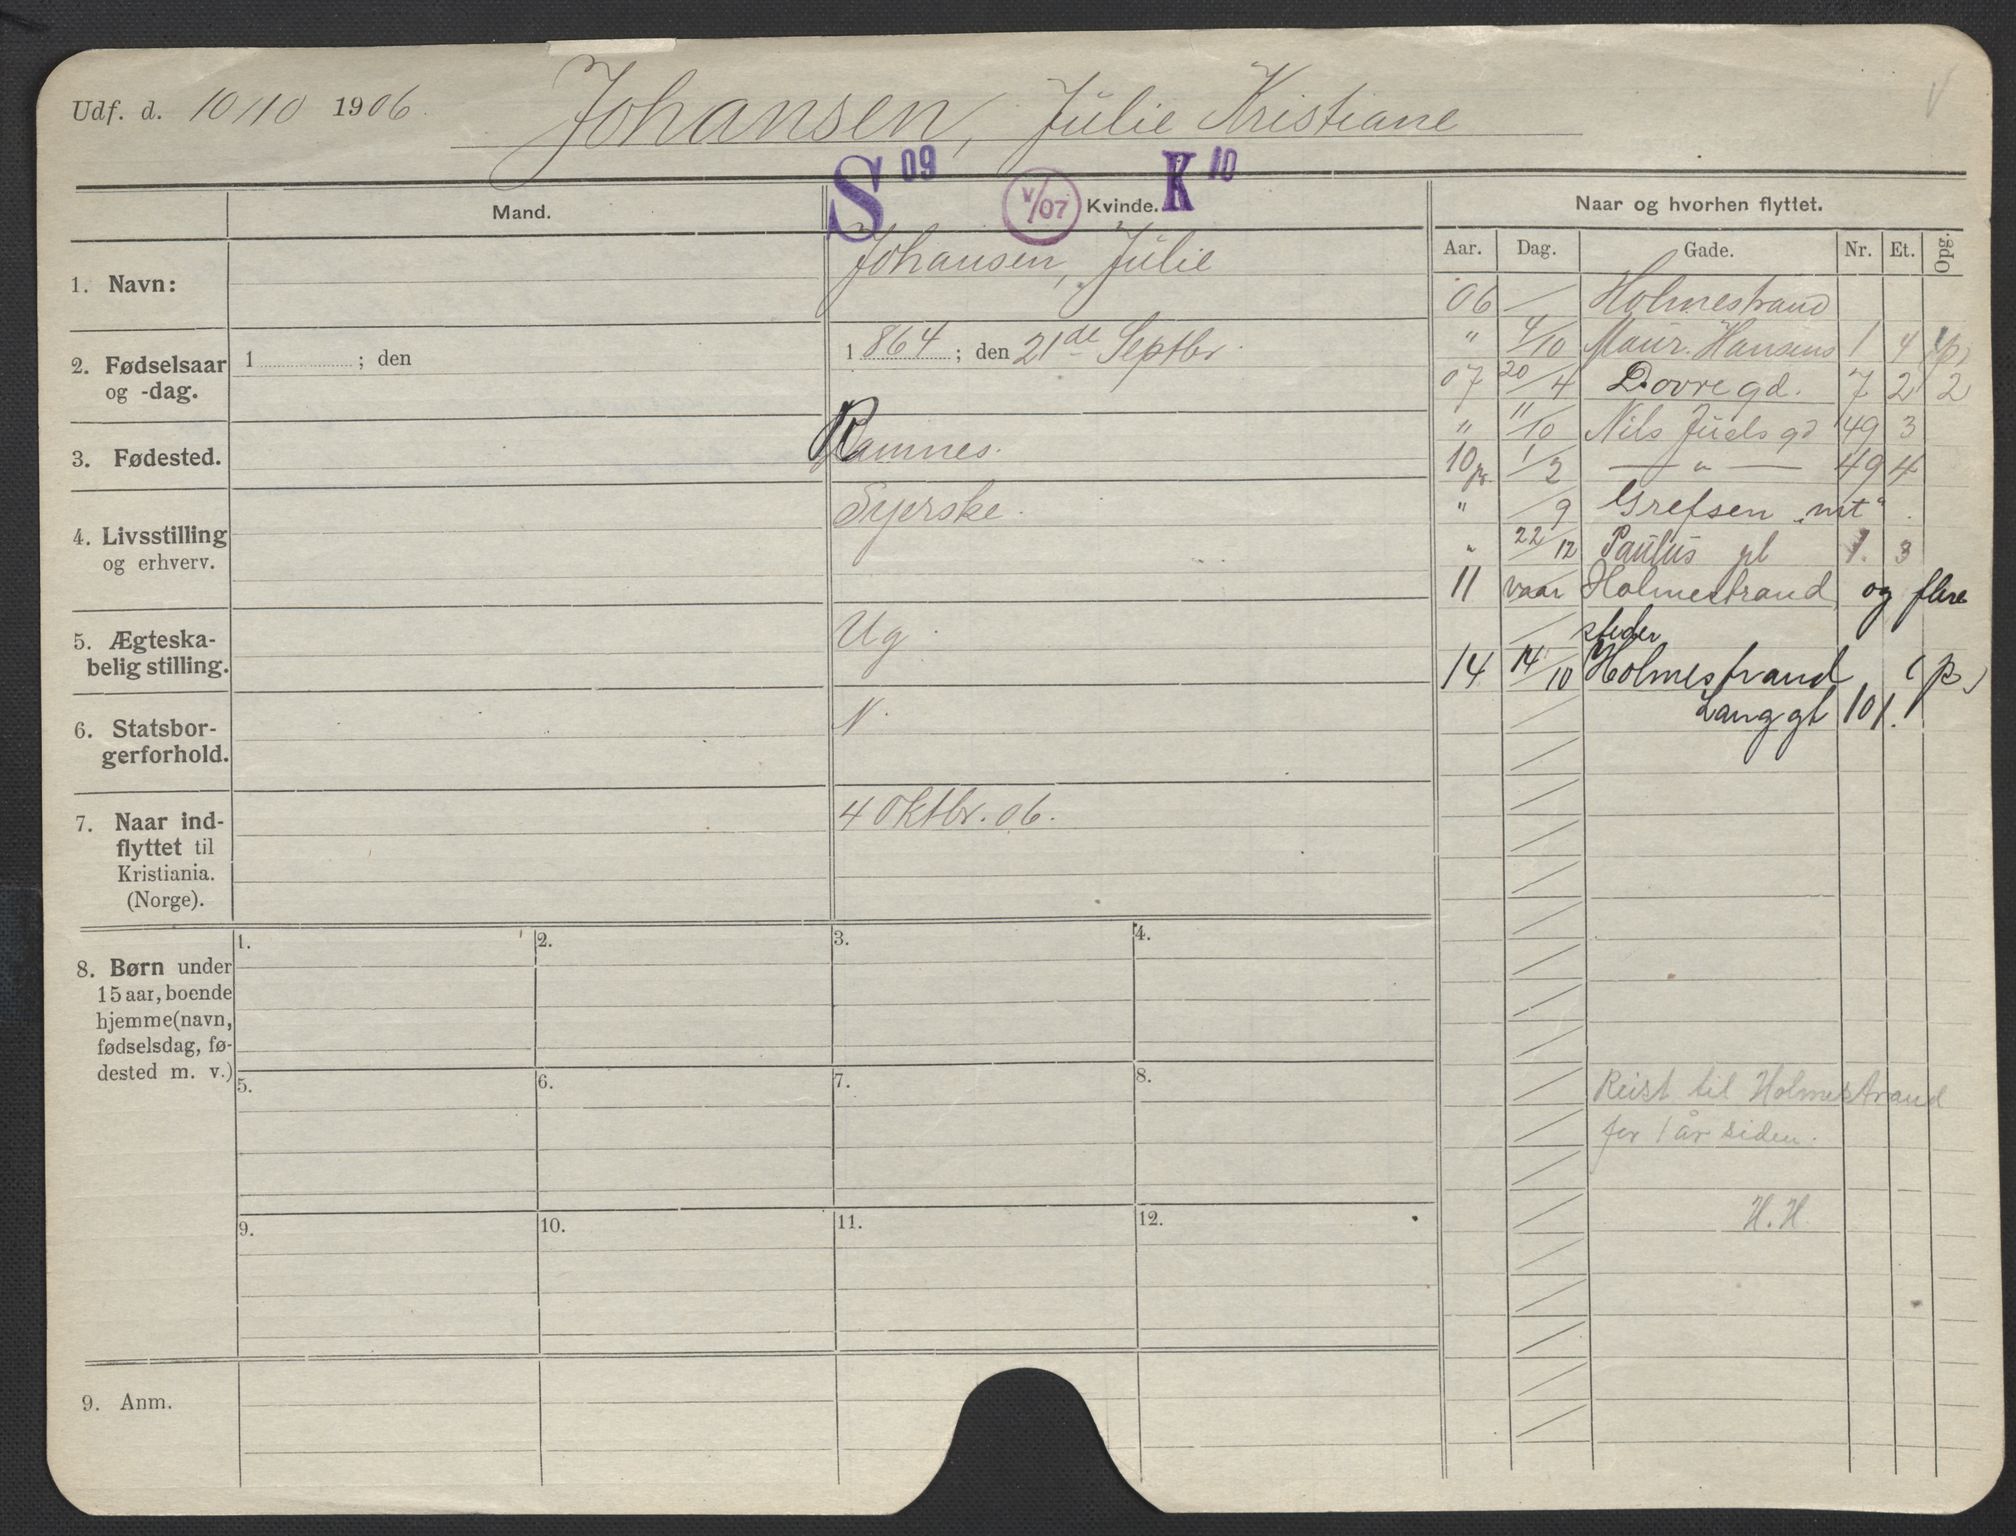 Udf. d. 10/10 1906. Johansen, Julie Kristiane
S 09 V/07 K 10
Mand. Kvinde. Naar og hvorhen flyttet.
Aar. Dag. Gade. Nr. Et. Opg.
1. Navn: Johansen, Julie
2. Fødselsaar og -dag. 1 ; den 1864 ; den 21de Septbr.
3. Fødested. Ramnes.
4. Livsstilling og erhverv. Syerske.
5. Ægteska-
belig stilling. Ug.
6. Statsbor-
gerforhold. N.
7. Naar ind-
flyttet til
Kristiania.
(Norge). 4 Oktbr. 06.
8. Børn under
15 aar, boende
hjemme (navn,
fødselsdag, fø-
dested m. v.)
1. 2. 3. 4.
5. 6. 7. 8.
9. 10. 11. 12.
9. Anm.
06 Holmestrand
" 4/10 Maur. Hansens 1 4 (p)
07 20/4 Dovregd. 7 2 2
" 11/10 Nils Juels gd 49 3
10 pr. 1/2 — " — 49 4
" /9 Grefsen "nit".
" 22/12 Paulus pl 1. 3
11 vaar Holmestrand og flere
steder
14 14/10 Holmestrand, (p.)
Langgt 101.
Reist til Holmestrand
for 1 år siden.
H. H